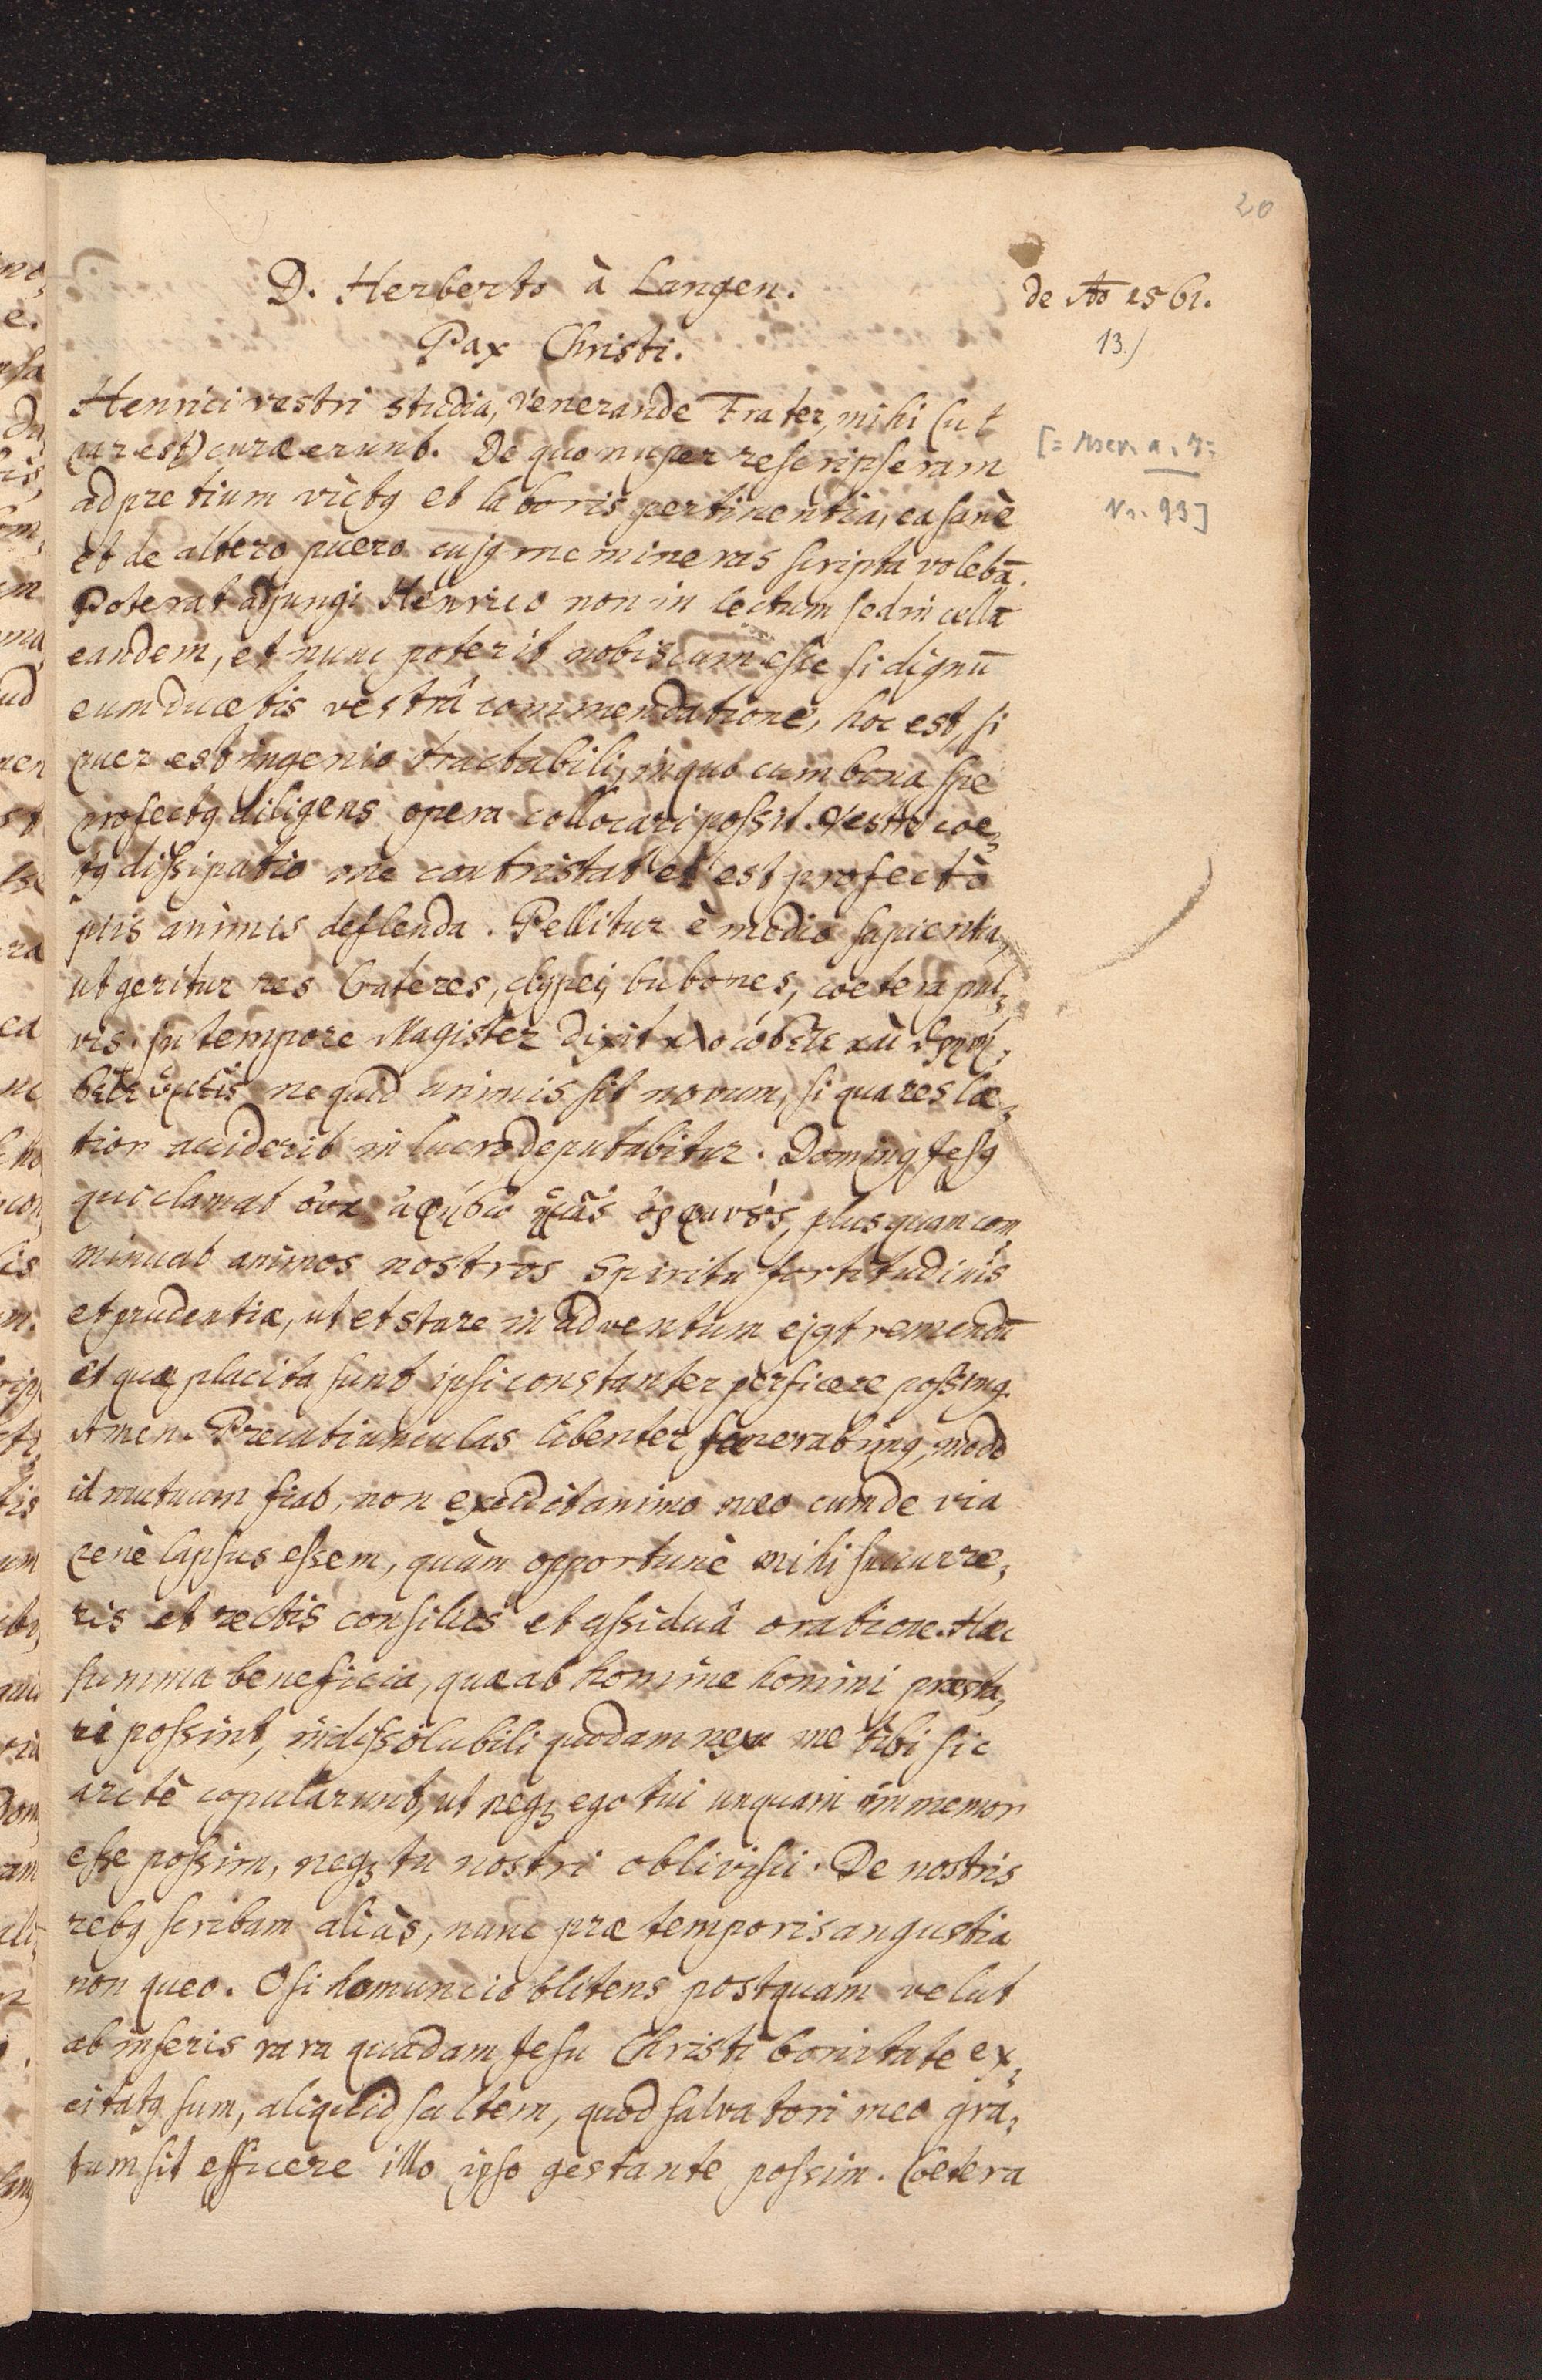 20
D. Herberto à Langen.
de Ao 1561.
Pax Christi.
13.)
Henrici vestri studia, Venerande Frater, mihi (ut
par est) curae erunt. De quo nuper rescripseram
ad pretium victq et laboris pertinentia, ea sanè
et de altero puero cujq memineras scripta volebā.
Nr. 93]
Poterat adjungi Henrico non in lectum sed in cellā
eandem, et nunc poterit nobiscum esse si dignū
eum ducetis vestrâ commendatione, hoc est, si
puer est ingenio tractabili, in quo cum bona spe
profectq diligens opera collocari possit. Vestri coe,
tq dissipatio me contristat et est profectò
piis animis deflenda. Pellitur è medio sapientia,
ut geritur res Crateres, clypei, bubones, coetera pul,
vis. In tempore Magister dixit
ne quid animis sit novum, si qua res lae,
tior acciderit in lucro deputabitur. Dominq Jesq
qui clamat οὐκ ἀφήσω ὑμᾶς ὀρφανούς, plusquam com,
minuat animos nostros Spiritu fortitudinis
et prudentiae, ut et stare in adventum ejq tremendū
et quae placita sunt ipsi constanter perficere possimq.
Amen. Precatiunculas libenter foenerabimq, modo
id mutuum fiat, non excidit animo meo cum de via
penè lapsus essem, quàm opportunè mihi succurre,
ris et rectis consiliis et assiduâ oratione. Haec
summa beneficia, quae ab homine homini praesta,
ri possint, indissolubili quodam nexu me tibi sic
arctè copularunt, ut neq; ego tui unquam immemor
esse possim, neq; tu nostri oblivisci. De nostris
rebq scribam aliàs, nunc prae temporis angustia
non queo. O si homuncio blitens postquam velut
ab inferis rara quadam Jesu Christi bonitate ex,
citatq sum, aliquid saltem, quod salvatori meo gra,
tum sit efficere illo ipso gestante possim. Coetera